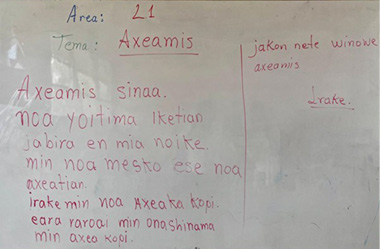 Area: L1
Tema: Axeamis
Axeamis sinaa.
noa yoitima Iketian
jabira en mia noike.
min noa mesko ese noa
axeatian.
irake min noa Axeaka kopi.
eara raroai min onashinama
min axea kopi.
jakon nete winowe
axeamis
Irake.